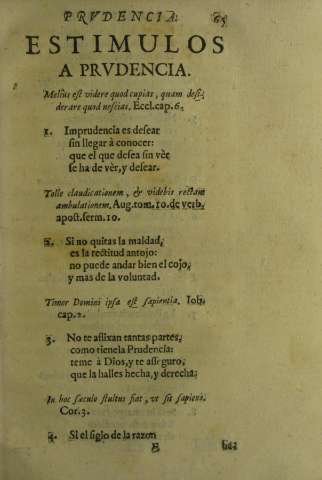 PRVDENCIA. 65
ESTIMULOS
A PRVDENCIA.
Melius est videre quod cupias, quam desi-
derare quod nescias. Eccl. cap. 6.
1. Imprudencia es desear
sin llegar à conocer:
que el que desea sin vèr,
se ha de vèr, y desear.
Tolle claudicationem, & videbis rectam
ambulationem. Aug. tom. 10. de verb.
apost. serm. 10.
2. Si no quitas la maldad,
es la rectitud antojo:
no puede andar bien el cojo,
y mas de la voluntad.
Timor Domini ipsa est sapientia. Iob.
cap. 2.
3. No te aflixan tantas partes,
como tiene la Prudencia:
teme à Dios, y te asseguro,
que la halles hecha, y derecha.
In hoc sæculo stultus fiat, vt sit sapiens.
Cor. 3.
4. Si el siglo de la razon